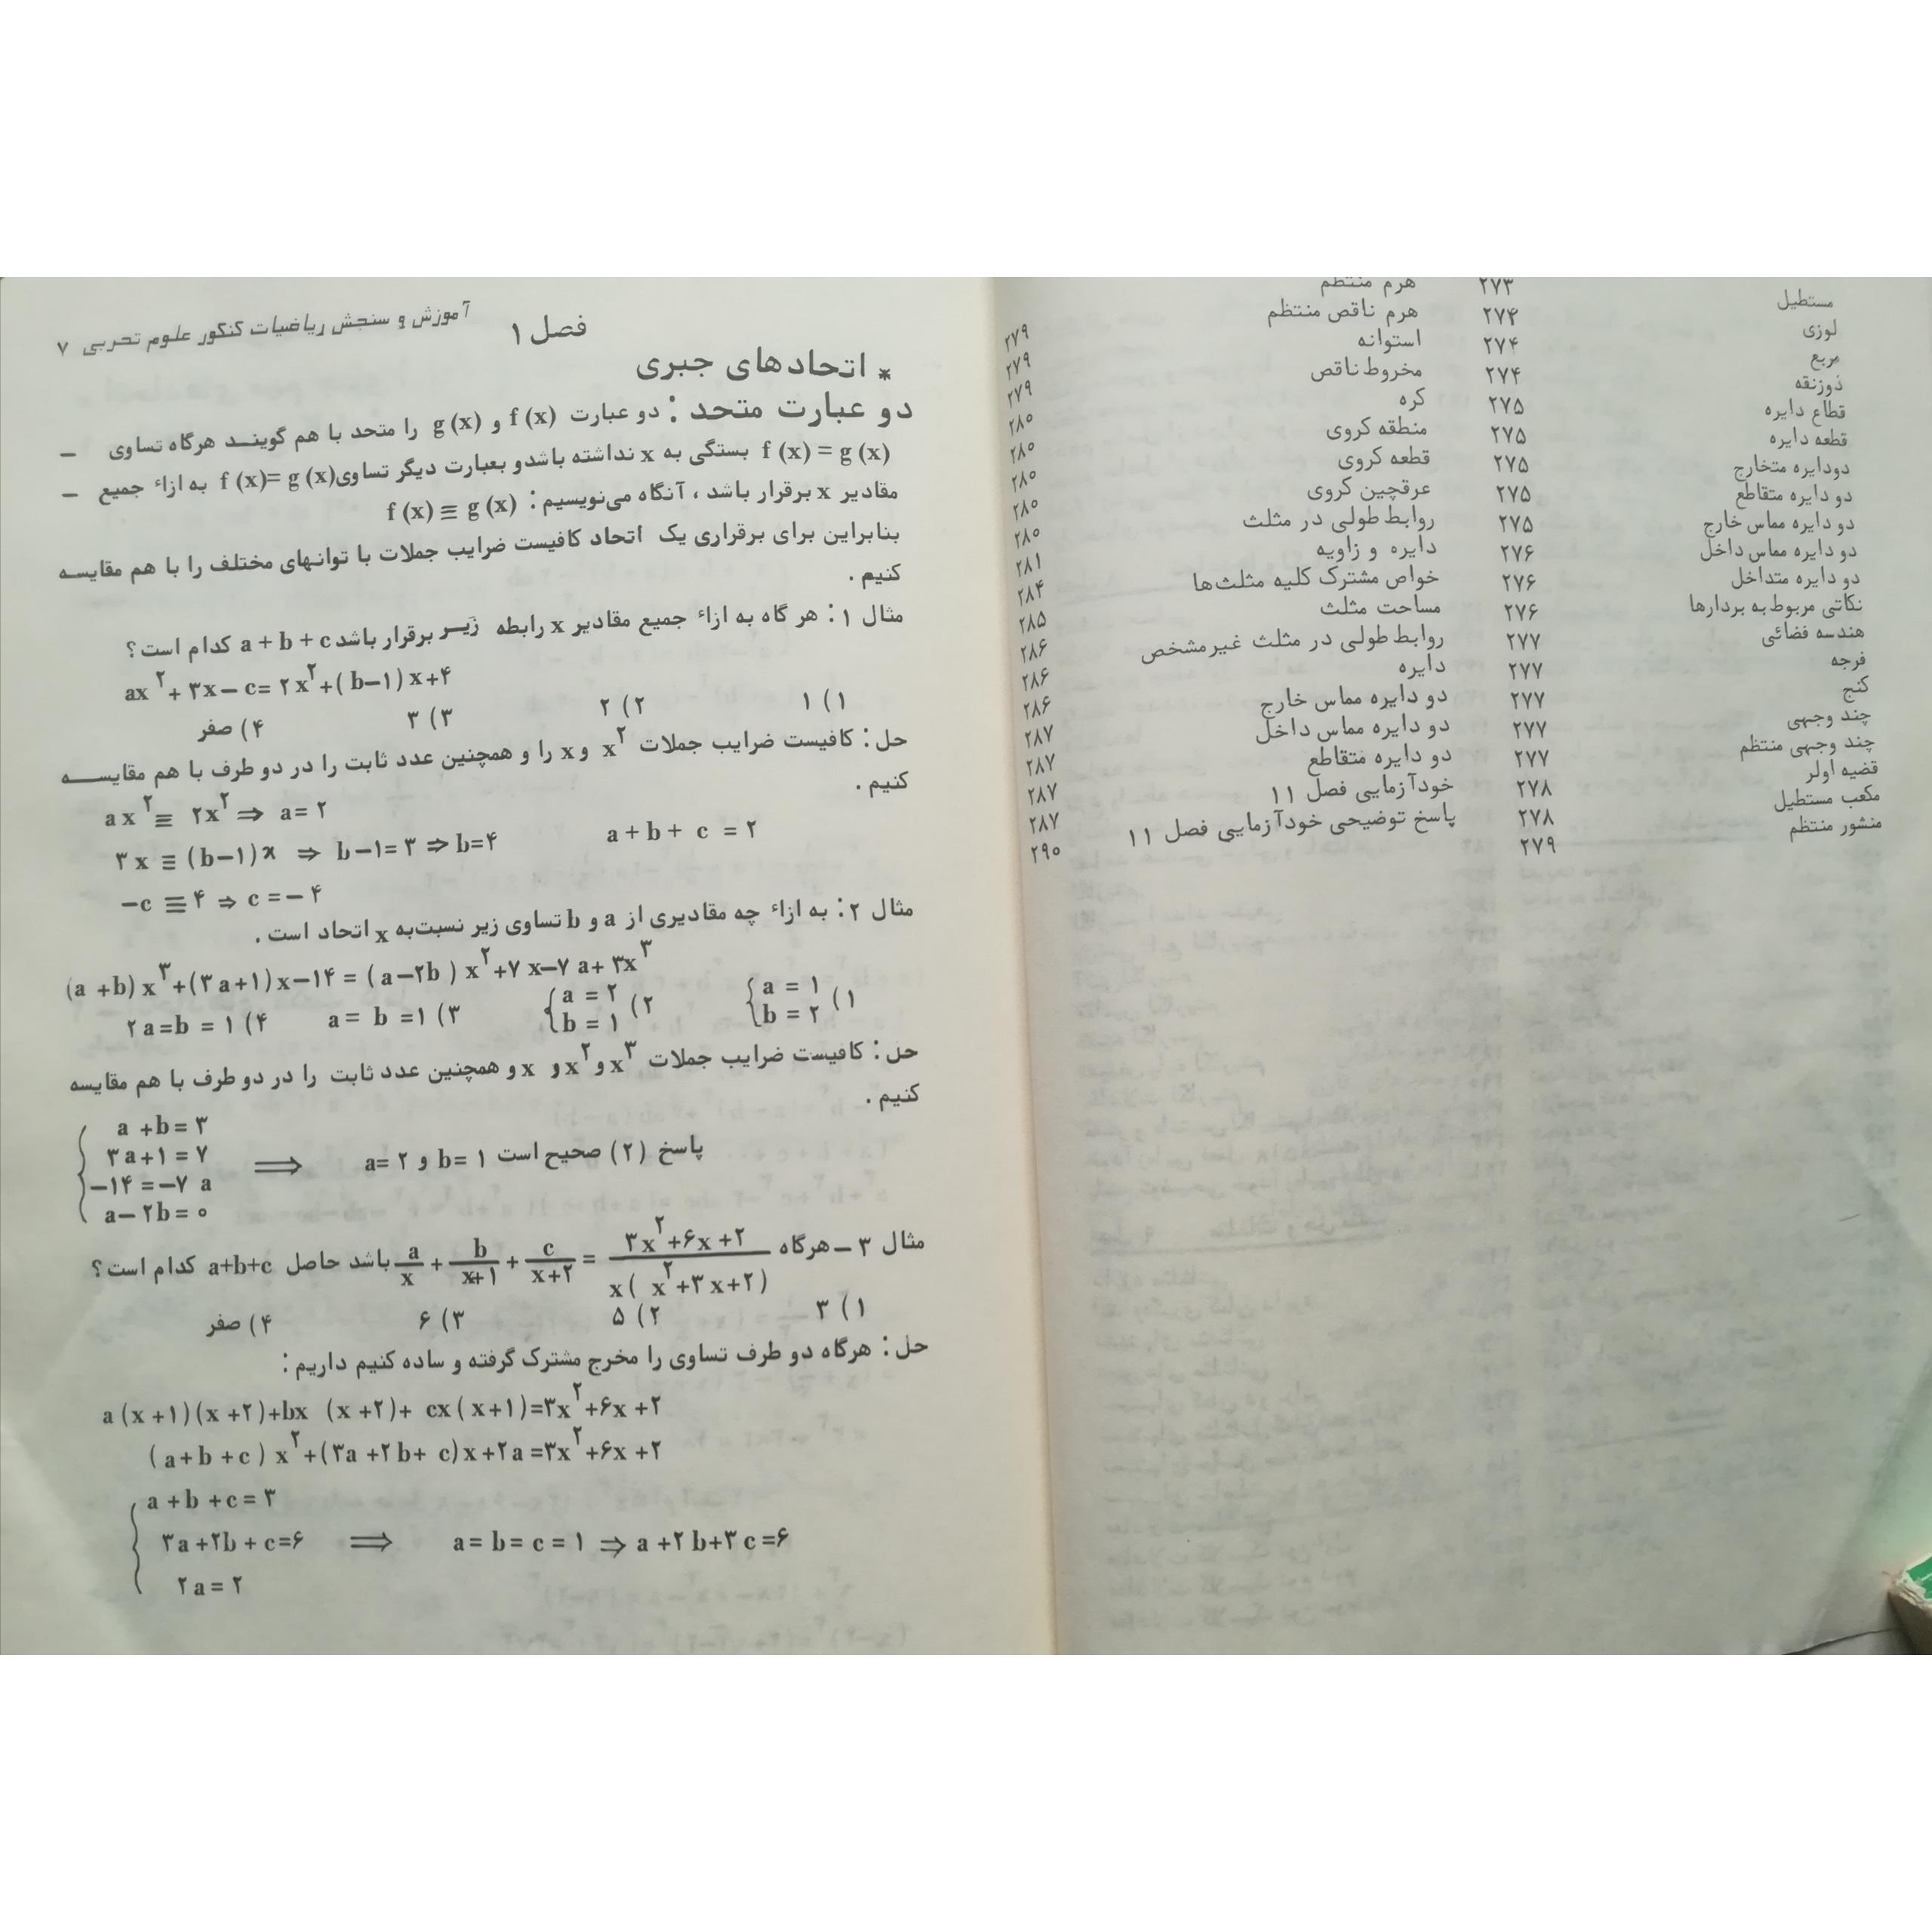 مستطیل ۲۷۳ هرم منتظم ۲۷۹
لوزی ۲۷۴ هرم ناقص منتظم ۲۷۹
مربع ۲۷۴ استوانه ۲۷۹
ذوزنقه ۲۷۴ مخروط ناقص ۲۸۰
قطاع دایره ۲۷۵ کره ۲۸۰
قطعه دایره ۲۷۵ منطقه کروی ۲۸۰
دودایره متخارج ۲۷۵ قطعه کروی ۲۸۰
دو دایره متقاطع ۲۷۵ عرقچین کروی ۲۸۰
دو دایره مماس خارج ۲۷۵ روابط طولی در مثلث ۲۸۱
دو دایره مماس داخل ۲۷۶ دایره و زاویه ۲۸۴
دو دایره متداخل ۲۷۶ خواص مشترک کلیه مثلث‌ها ۲۸۵
نکاتی مربوط به بردارها ۲۷۶ مساحت مثلث ۲۸۶
هندسه فضائی ۲۷۷ روابط طولی در مثلث غیرمشخص ۲۸۶
فرجه ۲۷۷ دایره ۲۸۶
کنج ۲۷۷ دو دایره مماس خارج ۲۸۷
چند وجهی ۲۷۷ دو دایره مماس داخل ۲۸۷
چند وجهی منتظم ۲۷۷ دو دایره متقاطع ۲۸۷
قضیه اولر ۲۷۸ خودآزمایی فصل ۱۱ ۲۸۷
مکعب مستطیل ۲۷۸ پاسخ توضیحی خودآزمایی فصل ۱۱ ۲۹۰
منشور منتظم ۲۷۹
آموزش و سنجش ریاضیات کنکور علوم تجربی ۷
فصل ۱
* اتحادهای جبری
دو عبارت متحد : دو عبارت f (x) و g (x) را متحد با هم گوینـد هرگاه تساوی –
f (x) = g (x) بستگی به x نداشته باشدو بعبارت دیگر تساوی f (x)= g (x) به ازاء جمیع –
مقادیر x برقرار باشد ، آنگاه می‌نویسیم : f (x) ≡ g (x)
بنابراین برای برقراری یک اتحاد کافیست ضرایب جملات با توانهای مختلف را با هم مقایسـه
کنیم .
مثال ۱ : هر گاه به ازاء جمیع مقادیر x رابطه زیـر برقرار باشد a + b + c کدام است ؟
ax² + ۳x – c= ۲x²+( b–۱) x+۴
۱) ۱ ۲) ۲ ۳) ۳ ۴) صفر
حل : کافیست ضرایب جملات x² و x را و همچنین عدد ثابت را در دو طرف با هم مقایسـه
کنیم .
ax² ≡ ۲x² ⇒ a= ۲
۳ x ≡ (b–۱)x ⇒ b–۱= ۳ ⇒ b=۴ a + b + c = ۲
–c ≡ ۴ ⇒ c = – ۴
مثال ۲ : به ازاء چه مقادیری از a و b تساوی زیر نسبت‌به x اتحاد است .
(a +b) x³+(۳ a+۱)x–۱۴ = (a–۲b ) x²+۷ x–۷ a+ ۳x³
۱) {a = ۱ ۲) {a = ۲ ۳) a = b =۱ ۴) ۲ a=b = ۱
b = ۲ b = ۱
حل : کافیست ضرایب جملات x³ و x² و x و همچنین عدد ثابت را در دو طرف با هم مقایسه
کنیم .
a +b= ۳
۳ a+۱ = ۷
–۱۴ =–۷ a ⟹ a= ۲ و b= ۱ پاسخ (۲) صحیح است
a– ۲b= ۰
مثال ۳ – هرگاه a/x + b/x+۱ + c/x+۲ = ۳x²+۶x +۲/x( x²+۳x+۲) باشد حاصل a+b+c کدام است ؟
۱) ۳ ۲) ۵ ۳) ۶ ۴) صفر
حل : هرگاه دو طرف تساوی را مخرج مشترک گرفته و ساده کنیم داریم :
a (x +۱)(x +۲)+bx (x +۲)+ cx ( x+۱)=۳x²+۶x +۲
( a+b +c ) x²+(۳a +۲b+ c)x +۲a =۳x²+۶x +۲
a +b +c = ۳
۳a +۲b + c=۶ ⟹ a= b = c = ۱ ⇒ a +۲ b+۳ c =۶
۲a = ۲